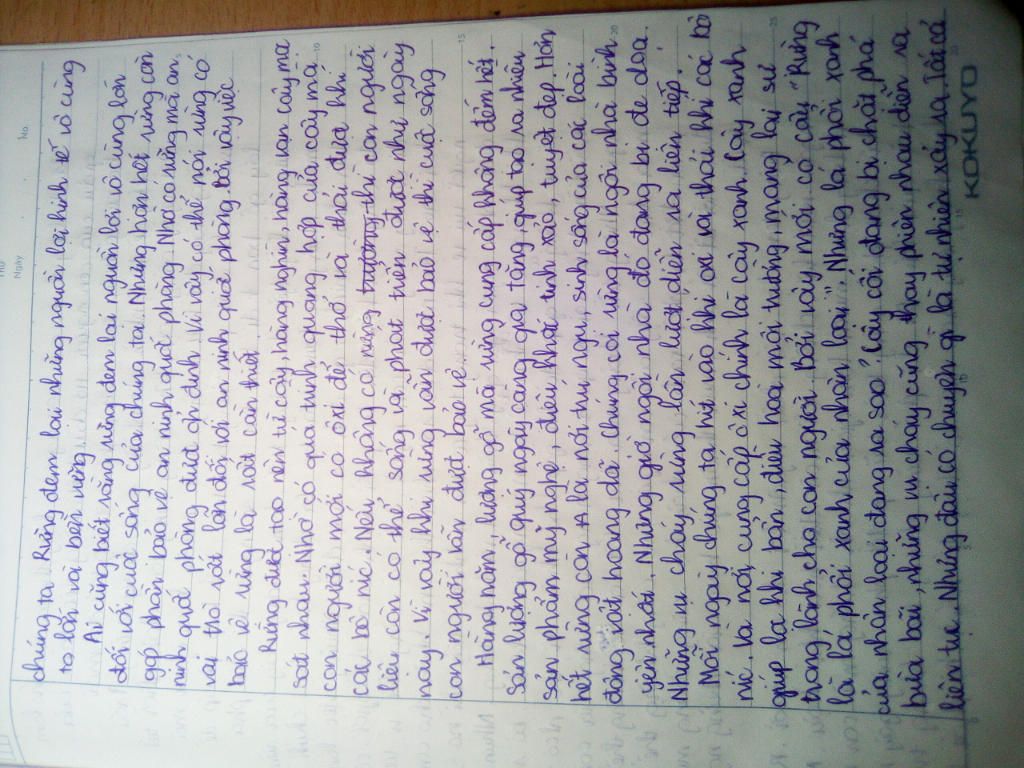 No.
Ngày
chúng ta. Rừng đem lại những nguồn lợi kinh tế vô cùng
to lớn và bền vững
Ai cũng biết rằng rừng đem lại nguồn lợi vô cùng lớn
đối với cuộc sống của chúng ta. Nhưng hơn hết rừng còn
góp phần bảo vệ an ninh quốc phòng. Nhờ có rừng mà an
ninh quốc phòng được ổn định. Vì vậy có thể nói rừng có
vai trò rất lớn đối với an ninh quốc phòng. Bởi vậy việc
bảo vệ rừng là rất cần thiết.
Rừng được tạo nên từ cây, hàng nghìn, hàng vạn cây mà
sát nhau. Nhờ có quá trình quang hợp của cây mà
con người mới có ôxi để thở và thải được khí
các bô níc. Nếu không có rừng thì con người
liệu còn có thể sống và phát triển được như ngày
nay. Vì vậy khi rừng vẫn được bảo vệ thì cuộc sống
con người vẫn được bảo vệ.
Hằng năm lượng gỗ mà rừng cung cấp không đếm hết.
Sản lượng gỗ quý ngày càng gia tăng, giúp tạo ra nhiều
sản phẩm mỹ nghệ, điêu khắc tinh xảo, tuyệt đẹp. Hơn
hết rừng còn là nơi trú ngụ, sinh sống của các loài
động vật hoang dã, chúng coi rừng là ngôi nhà bình
yên nhất. Nhưng giờ ngôi nhà đó đang bị đe dọa.
Những vụ cháy rừng lần lượt diễn ra liên tiếp.
Mỗi ngày chúng ta hít vào khí oxi và thải khí các bô
níc. Và nơi cung cấp ôxi chính là cây xanh. Cây xanh
giúp lá khí bổn, điều hoà môi trường, mang lại sự
trong lành cho con người. Bởi vậy mới có câu "Rừng
là lá phổi xanh của nhân loại". Nhưng lá phổi xanh
của nhân loại đang ra sao? Cây cối đang bị chặt phá
bừa bãi, những vụ cháy rừng thay phiên nhau diễn ra
liên tục. Nhưng đâu có chuyện gì là tự nhiên xảy ra. Tất cả
KOKUYO